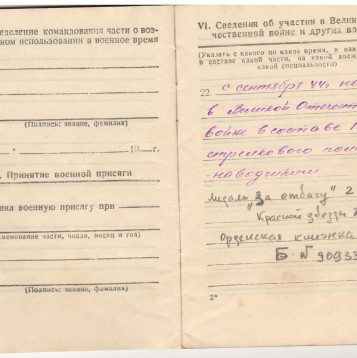 еделение командования части о воз-
ном использовании в военное время
(Подпись: звание, фамилия)
19 г.
. Принятие военной присяги
нял военную присягу при
менование части, число, месяц и год)
(Подпись: звание, фамилия)
VI. Сведения об участии в Велик
чественной войне и других во
(Указать с какого по какое время, в как
в составе какой части, на какой долж
какой специальности)
22. с сентября 44г.
в Великой Отечест
войне в составе
стрелкового пол
наводчиком
медаль "За отвагу" 2
"Красной звезды
орденская книжка
Б №
2*